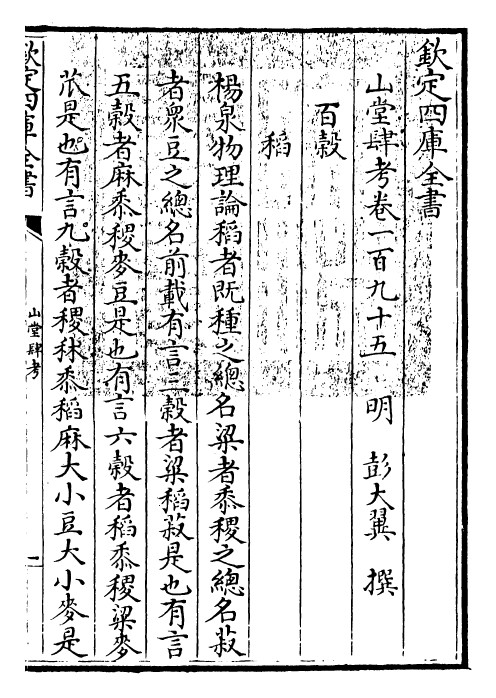 欽定四庫全書
山堂肆考卷一百九十五　明　彭大翼　撰
百穀
稻
楊泉物理論稻者既種之總名粱者黍稷之總名菽
者衆豆之總名前載有言三穀者粱稻菽是也有言
五穀者麻黍稷麥豆是也有言六穀者稻黍稷粱麥
苽是也有言九穀者稷秫黍稻麻大小豆大小麥是
欽定四庫全書
山堂肆考
一